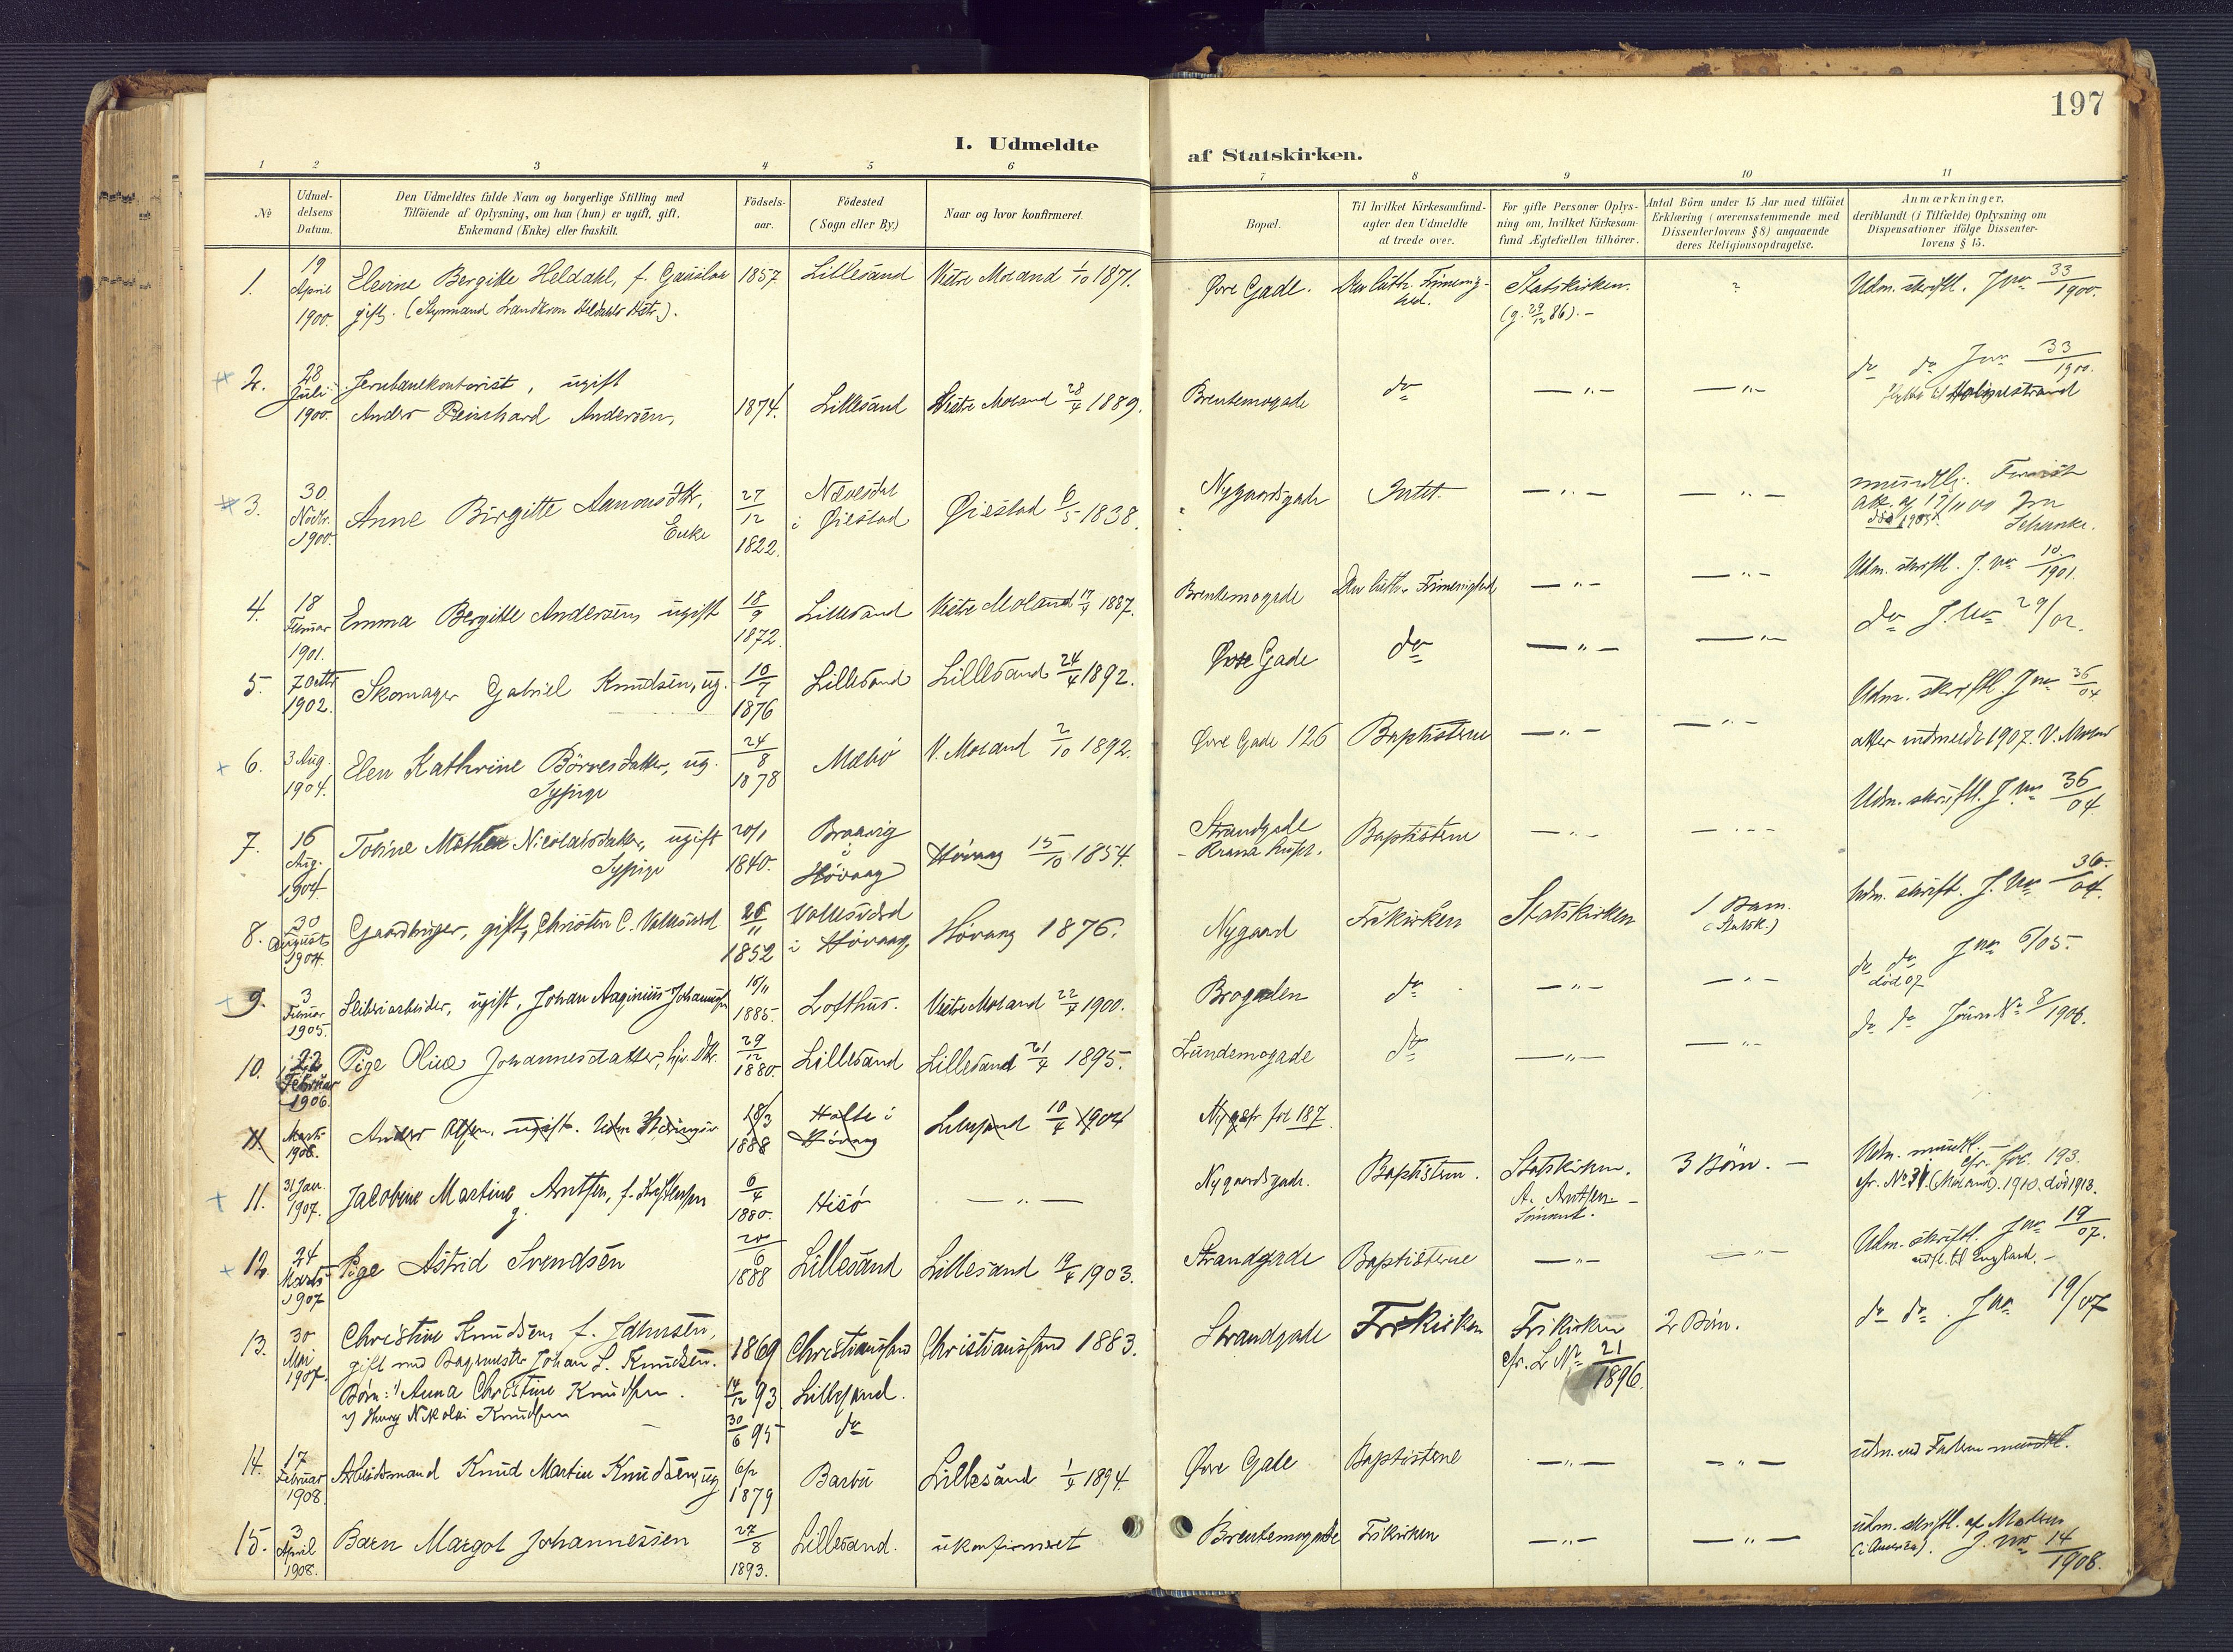 197
I. Udmeldte
af Statskirken.
1 2 3 4 5 6
7 8 9 10 11
No
Udmel-
delsens
Datum.
Den Udmeldtes fulde Navn og borgerlige Stilling med
Tilföiende af Oplysning, om han (hun) er ugift, gift,
Enkemand (Enke) eller fraskilt.
Födsels-
aar.
Födested
(Sogn eller By.)
Naar og hvor konfirmeret.
Bopæl.
Til hvilket Kirkesamfund-
agter den Udmeldte
at træde over.
For gifte Personer Oplys-
ning om, hvilket Kirkesam-
fund Ægtefællen tilhörer.
Antal Börn under 15 Aar med tilföiet
Erklæring (overensstemmende med
Dissenterlovens § 8) angaaende
deres Religionsopdragelse.
Anmærkninger,
deriblandt (i Tilfælde) Oplysning om
Dispensationer ifölge Dissenter-
lovens § 15.
1. 19 April 1900. Elevine Bergitte Heldahl, f. 1857 Lillesand Vestre Moland 1/10 1871. Øvre Gade. Den luth. Frimenig- Statskirken. ? Udm. skriftl. J no 33/1900.
gift. hed. (g. 29/12 86). -
2. 28 Juli 1900. Jernbanekontorist, ugift
Anders Reinhard Andersen, 1874. Lillesand Vestre Moland 28/4 1889. Brentemogade do — " — — " — do do J no 33/1900.
til Holmestrand
3. 30 Novbr. 1900. Anne Birgitte Aanonsdtr, Enke 27/12 1822. i Øiestad Øiestad 6/5 1838. Nygaardsgade Intet. — " — — " — mundtl.
4. 18 Februar 1901. Emma Bergitte Andersen, ugift 18/9 1872. Lillesand Vestre Moland 17/4 1887. Brentemogade Den luth. Frimenighed — " — — " — Udm. skriftl. J. no 10/1901.
5. 7 Octbr 1902. Skomager Gabriel Knudsen, ug. 10/7 1876 Lillesand Lillesand 24/4 1892. Øvre Gade do — " — — " — do J. no 29/02.
6. 3 Aug. 1904. Elen Kathrine Börresdatter, ug. 24/8 1878 Mæbö V. Moland 2/10 1892. Øvre Gade 126 Baptisterne — " — — " — Udm. skriftl. J no 36/04
Sypige atter indmeldt 1907. V. Moland
7. 16 Aug. 1904 Tobine Mathea Nicolaisdatter, ugift 20/1 1840. Braavig i Høvaag Høvaag 15/10 1854. Strandgade Baptisterne — " — — " — Udm. skriftl. J. no 36/04.
Sypige
8. 30 August 1904. Gaardbruger, gift, Christen C. Vallesverd 26/11 1852 Vallesverd i Høvaag. Høvaag 1876. Nygaard Frikirken Statskirken 1 Barn. (Statsk.) Udm. skriftl. J. no 36/04.
9. 3 Februar 1905. Sliberiarbeider, ugift, Johan 15/11 1885. Lofthus. Vestre Moland 22/4 1900. Brogaden do — " — — " — do do J no 6/05.
död 07
10. 22 Februar 1906. Pige Oliva Johannesdatter, 29/12 1880. Lillesand Lillesand 21/4 1895. Lundemogade do — " — — " — do do Journ No 8/1906.
11. Marts 1908. Anders Olsen, ugift. 18/3 1888 Holte i Høvaag Lillesand 10/4 1904 cfr fol 187
11. 31 Jan. 1907. Jacobine Martine Arntsen, f. 6/4 1880. Hisö — " — Nygaardsgade. Baptisterne. Statskirken. 3 Börn. — Udm. mundtl. - cfr. fol. 193.
g. A. Arntsen - Sömand. cfr. No 31 (Moland). 1910. död 1918.
12. 24 Marts 1907 Pige Astrid Svendsen 20/6 1888 Lillesand Lillesand 19/4 1903. Strandgade Baptisterne — " — — " — Udm. skriftl. J no 19/07.
til England. -
13. 30 Mai 1907. Christine Knudsen, f. Jahnsen, 1869 Christianssand Christianssand 1883. Strandgade Frikirken Frikirken 2 Börn. do do. J no 19/07
gift med Bagermester Johan L. Knudsen. cfr. L No 21/1896.
Börn: 1) Anna Christine Knudsen. 14/12 93 Lillesand.
2) Nikolai Knudsen 30/6 95 do
14. 17 Februar 1908. Arbeidsmand Knud Martin Knudsen, ug 6/2 1879 Barbu Lillesand 1/4 1894. Øvre Gade Baptisterne — " — — " — udm. ved Faderen mundtl.
15. 3 April 1908. Barn Margot Johannessen 27/8 1893. Lillesand. ukonfirmeret Brentemogade Frikirken — " — — " — udm. skriftl. af Moderen
(i Amerika). J. no 14/1908.